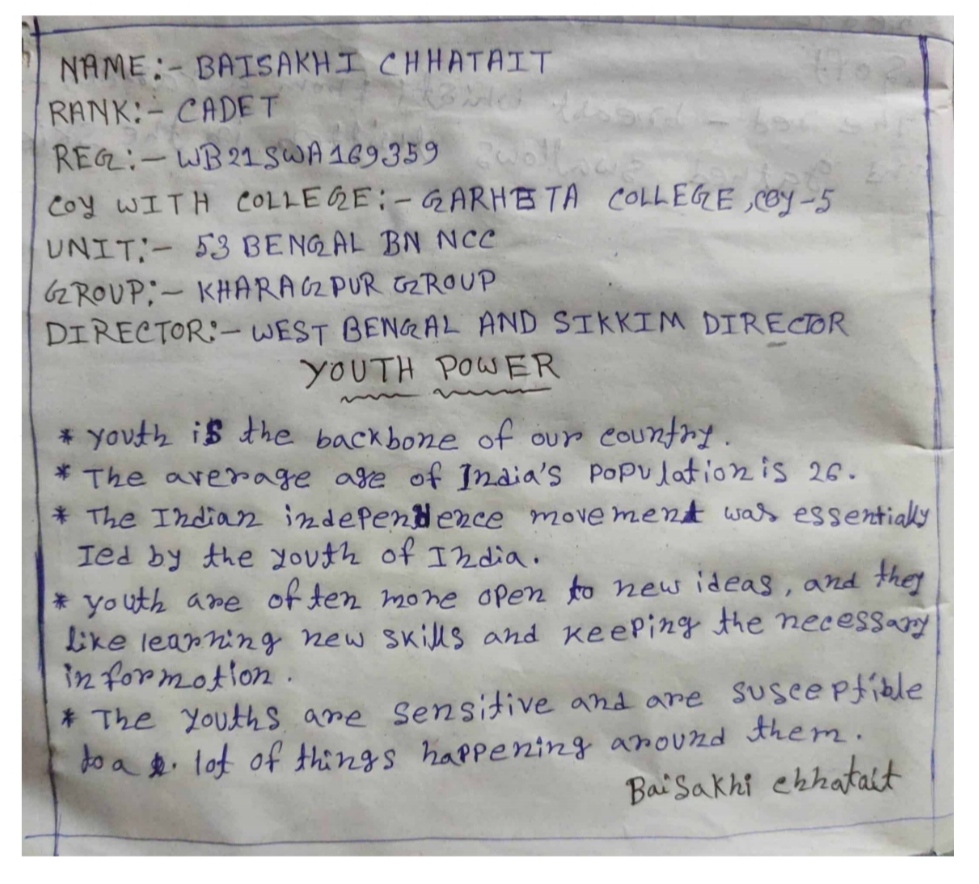 NAME:- BAISAKHI CHHATAIT
RANK:- CADET
REG:- WB21SWA169359
COY WITH COLLEGE:- GARHBETA COLLEGE, COY-5
UNIT:- 53 BENGAL BN NCC
GROUP:- KHARAGPUR GROUP
DIRECTOR:- WEST BENGAL AND SIKKIM DIRECTOR
YOUTH POWER
* youth is the backbone of our country.
* The average age of India's population is 26.
* The Indian independence movement was essentially
led by the youth of India.
* youth are often more open to new ideas, and they
like learning new skills and keeping the necessary
informotion.
* The youths are sensitive and are susceptible
to a lot of things happening around them.
Baisakhi chhatait